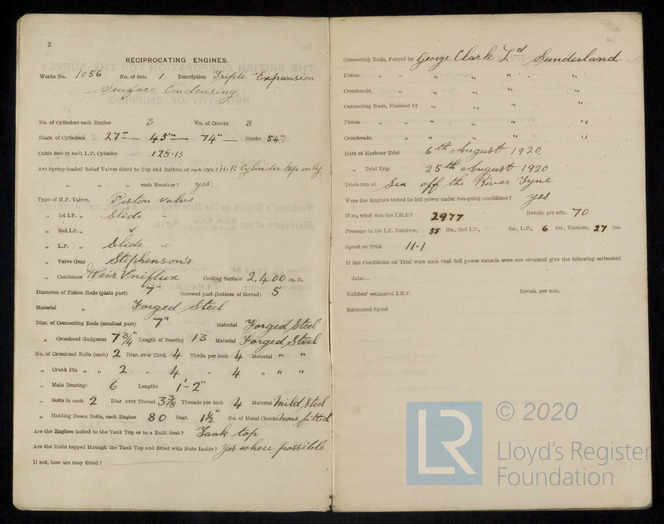 2
RECIPROCATING ENGINES.
Works No. 1056 No. of Sets 1 Description Triple Expansion
Surface Condensing
No. of Cylinders each Engine 3 No. of Cranks 3
Diars. of Cylinders 27" — 45" — 74" — Stroke 54"
Cubic feet in each L.P. Cylinder 125.13
Are Spring-loaded Relief Valves fitted to Top and Bottom of each Cylr? H.P. Cylinder top only
" " each Receiver? yes
Type of H.P. Valves, Piston Valve
" 1st I.P. " Slide "
" 2nd I.P. " ✓
" L.P. " Slide "
" Valve Gear Stephenson's
" Condenser Weir Uniflux Cooling Surface 2,400 sq. ft.
Diameter of Piston Rods (plain part) 7" Screwed part (bottom of thread) 5
Material " Forged Steel
Diar. of Connecting Rods (smallest part) 7" Material Forged Steel
" Crosshead Gudgeons 7 3/4" Length of Bearing 13 Material Forged Steel
No. of Crosshead Bolts (each) 2 Diar. over Thrd. 4 Thrds. per inch 4 Material " "
" Crank Pin " " 2 " 4 " 4 " " "
" Main Bearings 6 Lengths 1'-2"
" Bolts in each 2 Diar. over Thread 3 3/8 Threads per inch 4 Material Mild Steel
" Holding Down Bolts, each Engine 80 Diar. 1 1/2" No. of Metal Chocks None fitted
Are the Engines bolted to the Tank Top or to a Built Seat? Tank top
Are the Bolts tapped through the Tank Top and fitted with Nuts Inside? Yes where possible
If not, how are they fitted?
Connecting Rods, Forged by George Clark Ld Sunderland
Piston " " " "
Crossheads, " " "
Connecting Rods, Finished by " "
Piston " " " "
Crossheads, " " "
Date of Harbour Trial 6th August 1920
" Trial Trip 25th August 1920
Trials run at Sea off the River Tyne
Were the Engines tested to full power under Sea-going conditions? yes
If so, what was the I.H.P.? 2977 Revols. per min. 70
Pressure in 1st I.P. Receiver, 55 lbs., 2nd I.P., lbs., L.P., 6 lbs., Vacuum, 27 ins.
Speed on Trial 11.1
If the Conditions on Trial were such that full power records were not obtained give the following estimated
data:—
Builders' estimated I.H.P. Revols. per min.
Estimated Speed
LR © 2020
Lloyd's Register
Foundation